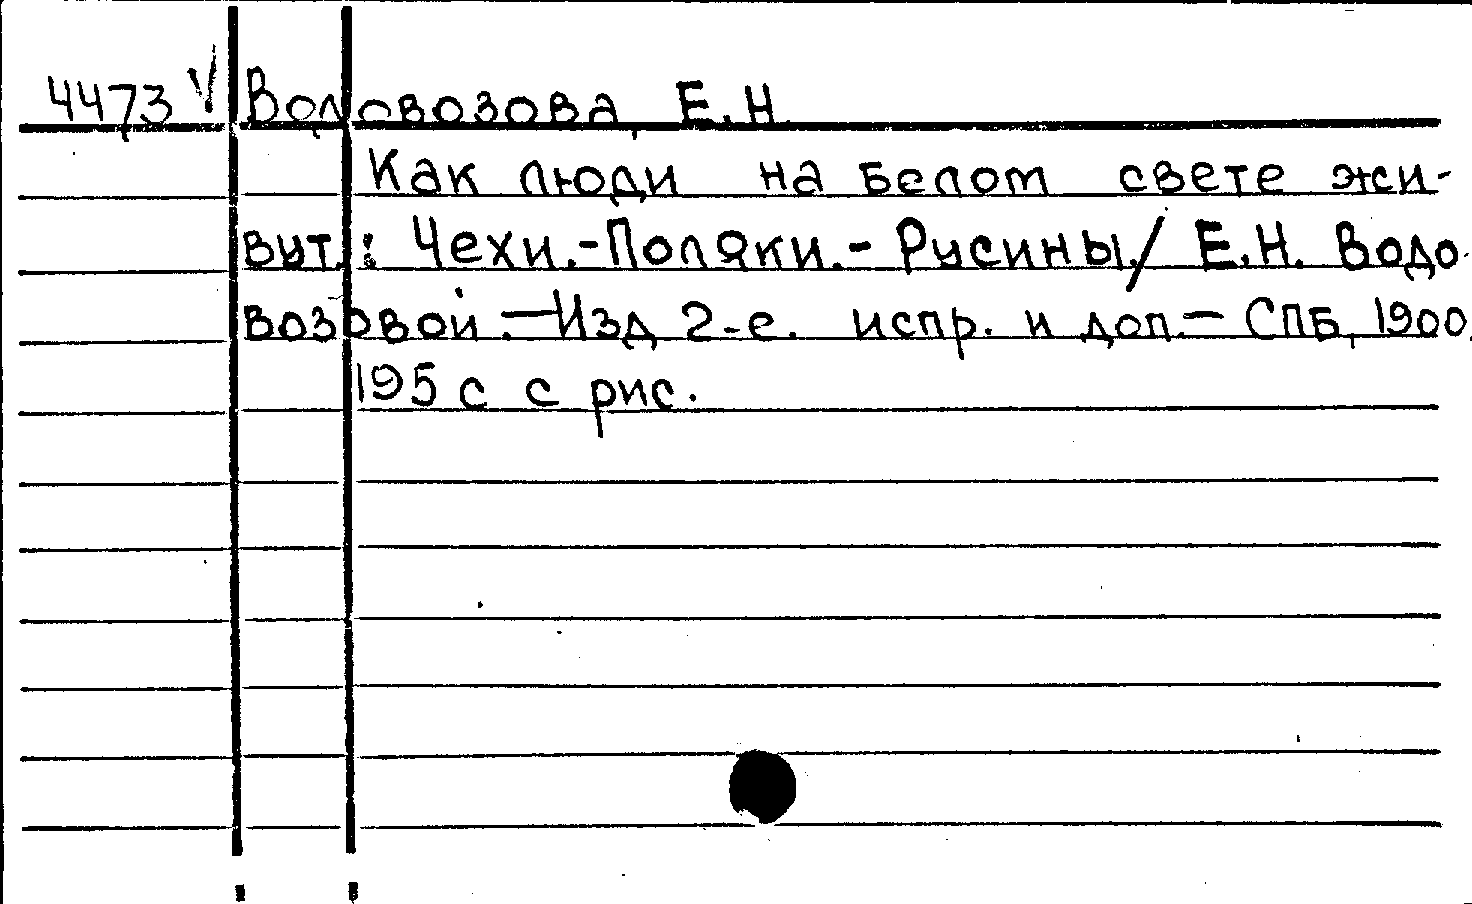 4473 V Водовозова, Е.Н.
Как люди на белом свете жи-
вут.: Чехи.-Поляки.- Русины./ Е.Н. Водо-
возовой.-Изд 2-е. испр. и доп.- СПБ, 1900.
195 с с рис.